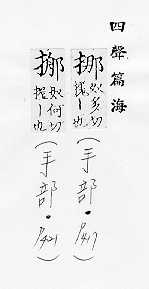 四聲篇海
挪
奴多切
搓丨也
(手部·P417)
挪
奴何切
搓丨也
(手部·P421)